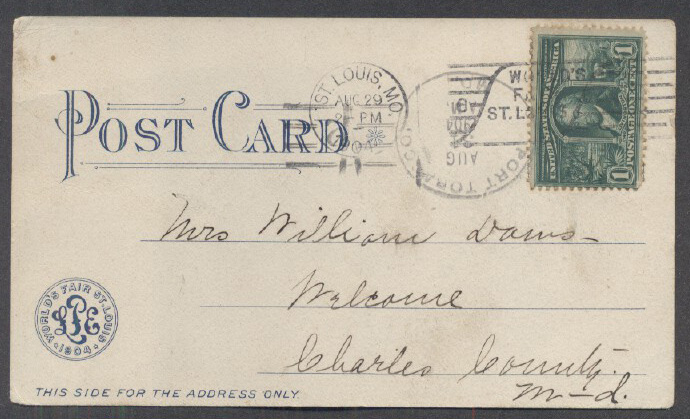 POST CARD
ST. LOUIS, MO
AUG 29
PM
WORLD'S
ST. L
PORT TOBACCO
AUG
1 1
UNITED STATES OF AMERICA
POSTAGE ONE CENT
Mrs William Davis
Welcome
Charles County
M-d.
WORLD'S FAIR ST. LOUIS
LPE
1904
THIS SIDE FOR THE ADDRESS ONLY.